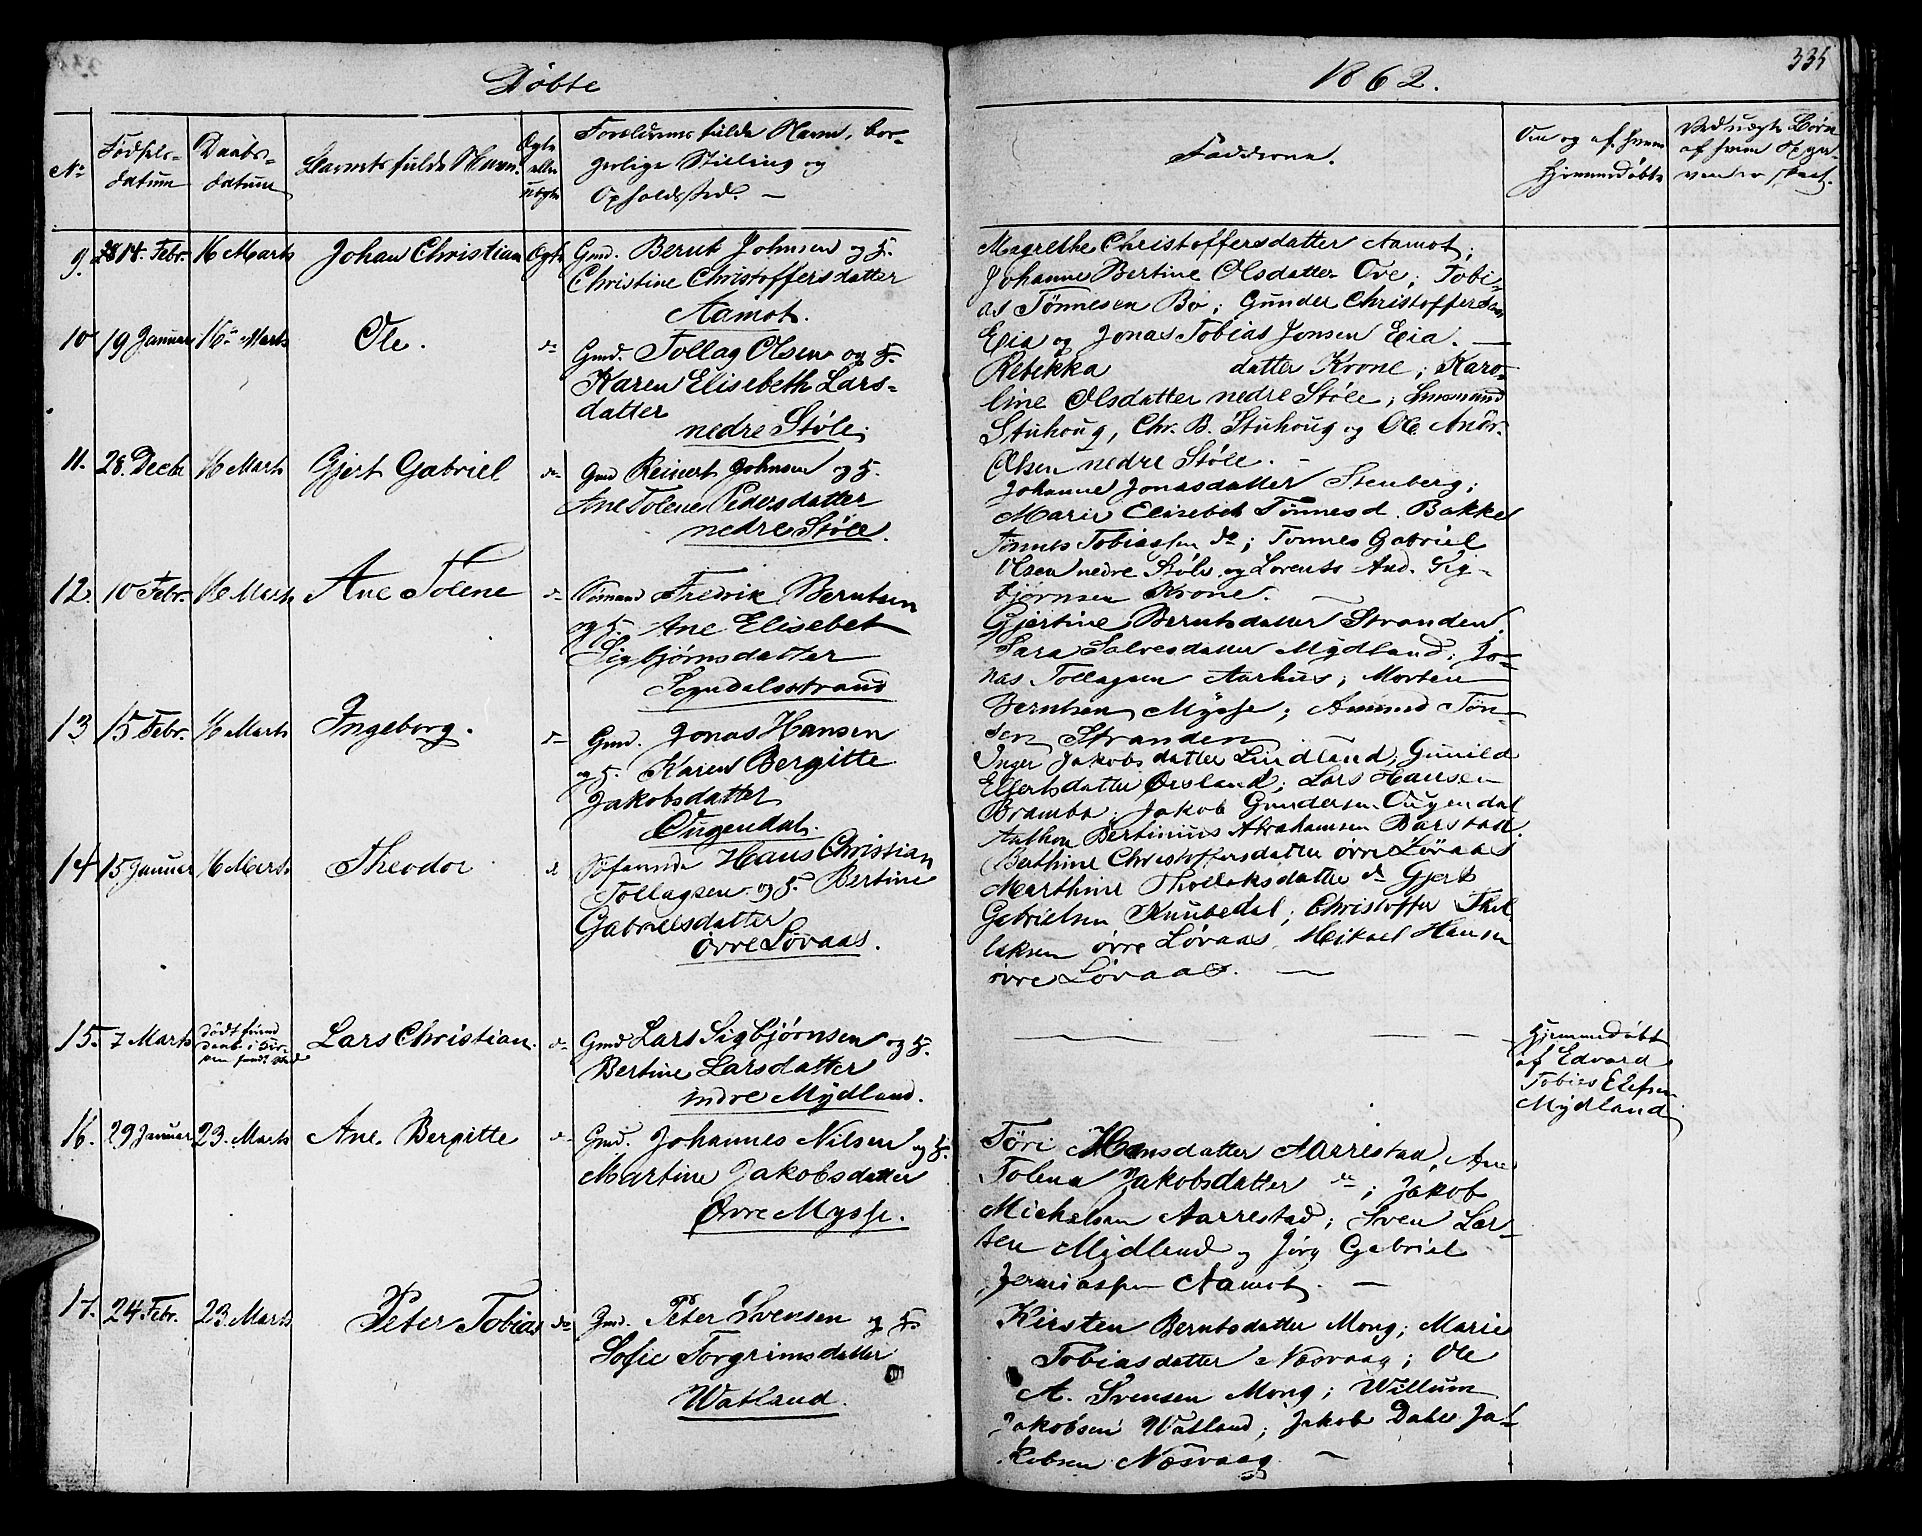 Døbte
1862.
335
No
Fødsels-
datum
Daabs-
datum
Barnets fulde Navn.
Ægte
eller
uægte
Forældrenes fulde Navn, bor-
gerlige Stilling og
Opholdssted. —
Fadderne.
Om og af hvem
hjemmedøbt
Ved uægte Børn
af hvem Opga-
ven er skeet.
9. 14. Febr. 16 Marts Johan Christian Ægte
Gmd. Berut Johnsen og H.
Christine Christoffersdatter
Aamot.
Magrethe Christoffersdatter Aamot;
Johanne Bertine Olsdatter Ove; Tobi-
as Tönnesen Bö; Gunder Christoffersen
Eia og Jonas Tobias Jonsen Eia. —
10 19 Januar 16 Marts Ole. do
Gmd. Tollag Olsen og H.
Karen Elisebeth Lars-
datter
nedre Støle;
Rebekka datter Krone; Karo-
line Olsdatter nedre Støle;
Stuhoug, Chr. B. Stuhoug og Ole Andr.
Olsen nedre Støle. —
11. 28. Decb 16 Marts Gjert Gabriel do
Gmd Reinert Johnsen og H.
Ane Tolene Pedersdatter
nedre Støle.
Johanne Jonasdatter Stenberg;
Marie Elisebet Tönnesd. Bakke
Tønnes Tobiassen do; Tønnes Gabriel
Olsen nedre Støle og Lorents And. Sig-
bjørnsen Krone. —
12. 10 Febr. 16 Marts Ane Tolene do
Sømand Fredrik Berntsen
og H. Ane Elisebet
Sigbjørnsdatter
Sogndalsstrand
Gjertine Berntsdatter Stranden,
Sara Salvesdatter Mydland; Jo-
nas Tollagsen Aarhus; Morten
Berntsen Mysse; Amund Tön-
sen Stranden
13 15 Febr. 16 Marts Ingeborg. do
Gmd. Jonas Hansen
og H. Karen Bergitte
Jakobsdatter
Ougendal.
Inger Jakobsdatter Lindland; Gunild
Elfertsdatter Ørsland; Lars Hansen
Bramba; Jakob Gundersen Ougendal
Anthon Bertinius Abrahamsen Barstad.
14 15 Januar 16 Marts Theodor do
Søfarende Hans Christian
Tollagsen og H. Bertine
Gabrielsdatter
övre Løvaas.
Berthine Christoffersdatter övre Løvaas
Marthine Thollaksdatter do Gjert
Gabrielsen Knubedal; Christoffer Thol
laksen övre Løvaas, Mikael Hansen
övre Løvaas. —
15. 7 Marts
Lars Christian. do
Gmd Lars Sigbjørnsen og H.
Bertine Larsdatter
indre Mydland.
Hjemmedøbt
af Edvard
Tobias Elefsen
Mydland
16. 29 Januar 23. Marts Ane Bergitte do
Gmd. Johannes Nilsen og H.
Martine Jakobsdatter
Övre Mysse.
Töri Hansdatter Aarrestad, Ane
Tolena Jakobsdatter do; Jakob
Michelsen Aarrestad; Sven Lar-
sen Mydland og Jörg Gabriel
Jermiassen Aamot. —
17. 24. Febr. 23. Marts Peter Tobias do
Gmd. Peter Svensen og H.
Sofie Torgrimsdatter
Watland.
Kirsten Berntsdatter Mong; Marie
Tobiasdatter Nesvaag; Ole
A. Svensen Mong; Willum
Jakobsen Watland; Jakob Daler Ja-
kobsen Nesvaag —